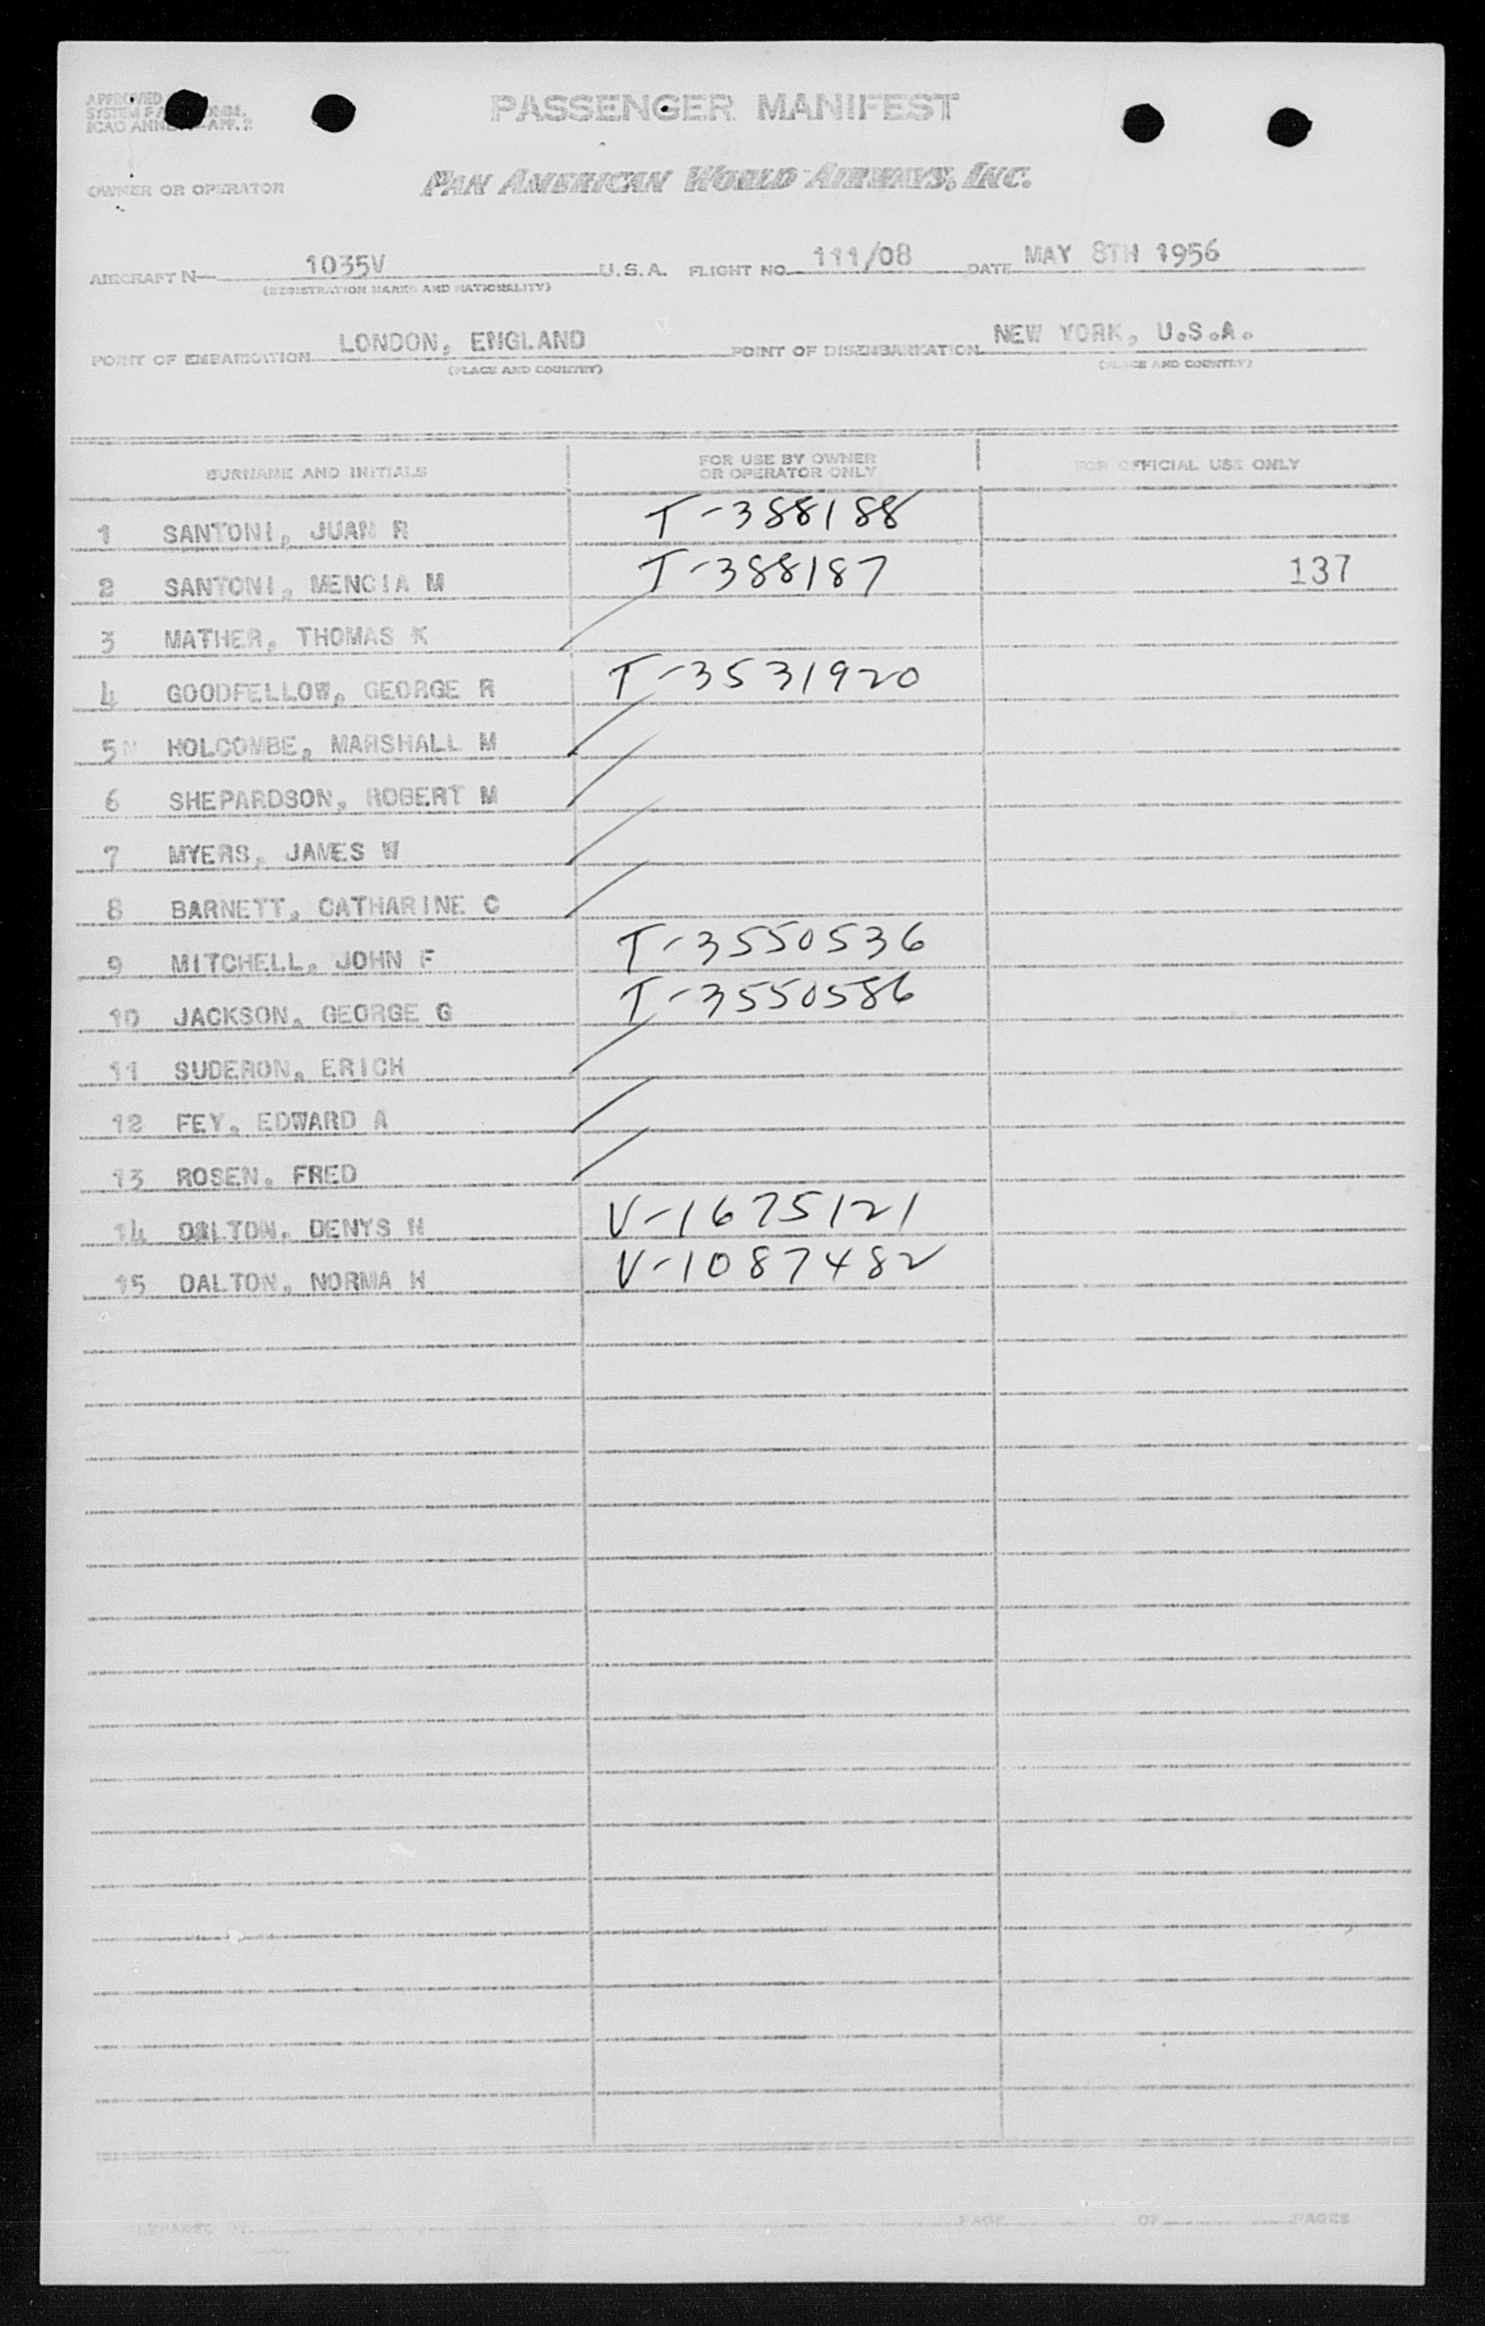 APPROVED
SYSTEM
ICAO ANNEX APP. 2
PASSENGER MANIFEST
OWNER OR OPERATOR PAN AMERICAN WORLD AIRWAYS, INC.
AIRCRAFT N 1035V U.S.A. FLIGHT NO. 111/08 DATE MAY 8TH 1956
(REGISTRATION MARKS AND NATIONALITY)
POINT OF EMBARKATION LONDON, ENGLAND POINT OF DISEMBARKATION NEW YORK, U.S.A.
(PLACE AND COUNTRY) (PLACE AND COUNTRY)
SURNAME AND INITIALS FOR USE BY OWNER OR OPERATOR ONLY FOR OFFICIAL USE ONLY
1 SANTONI, JUAN R T-388188
2 SANTONI, MENCIA M T-388187 137
3 MATHER, THOMAS K
4 GOODFELLOW, GEORGE R T-3531920
5 HOLCOMBE, MARSHALL M
6 SHEPARDSON, ROBERT M
7 MYERS, JAMES W
8 BARNETT, CATHARINE C
9 MITCHELL, JOHN F T-3550536
10 JACKSON, GEORGE G T-3550586
11 SUDERON, ERICH
12 FEY, EDWARD A
13 ROSEN, FRED
14 DALTON, DENYS H V-1675121
15 DALTON, NORMA H V-1087482
PREPARED BY PAGE OF PAGES